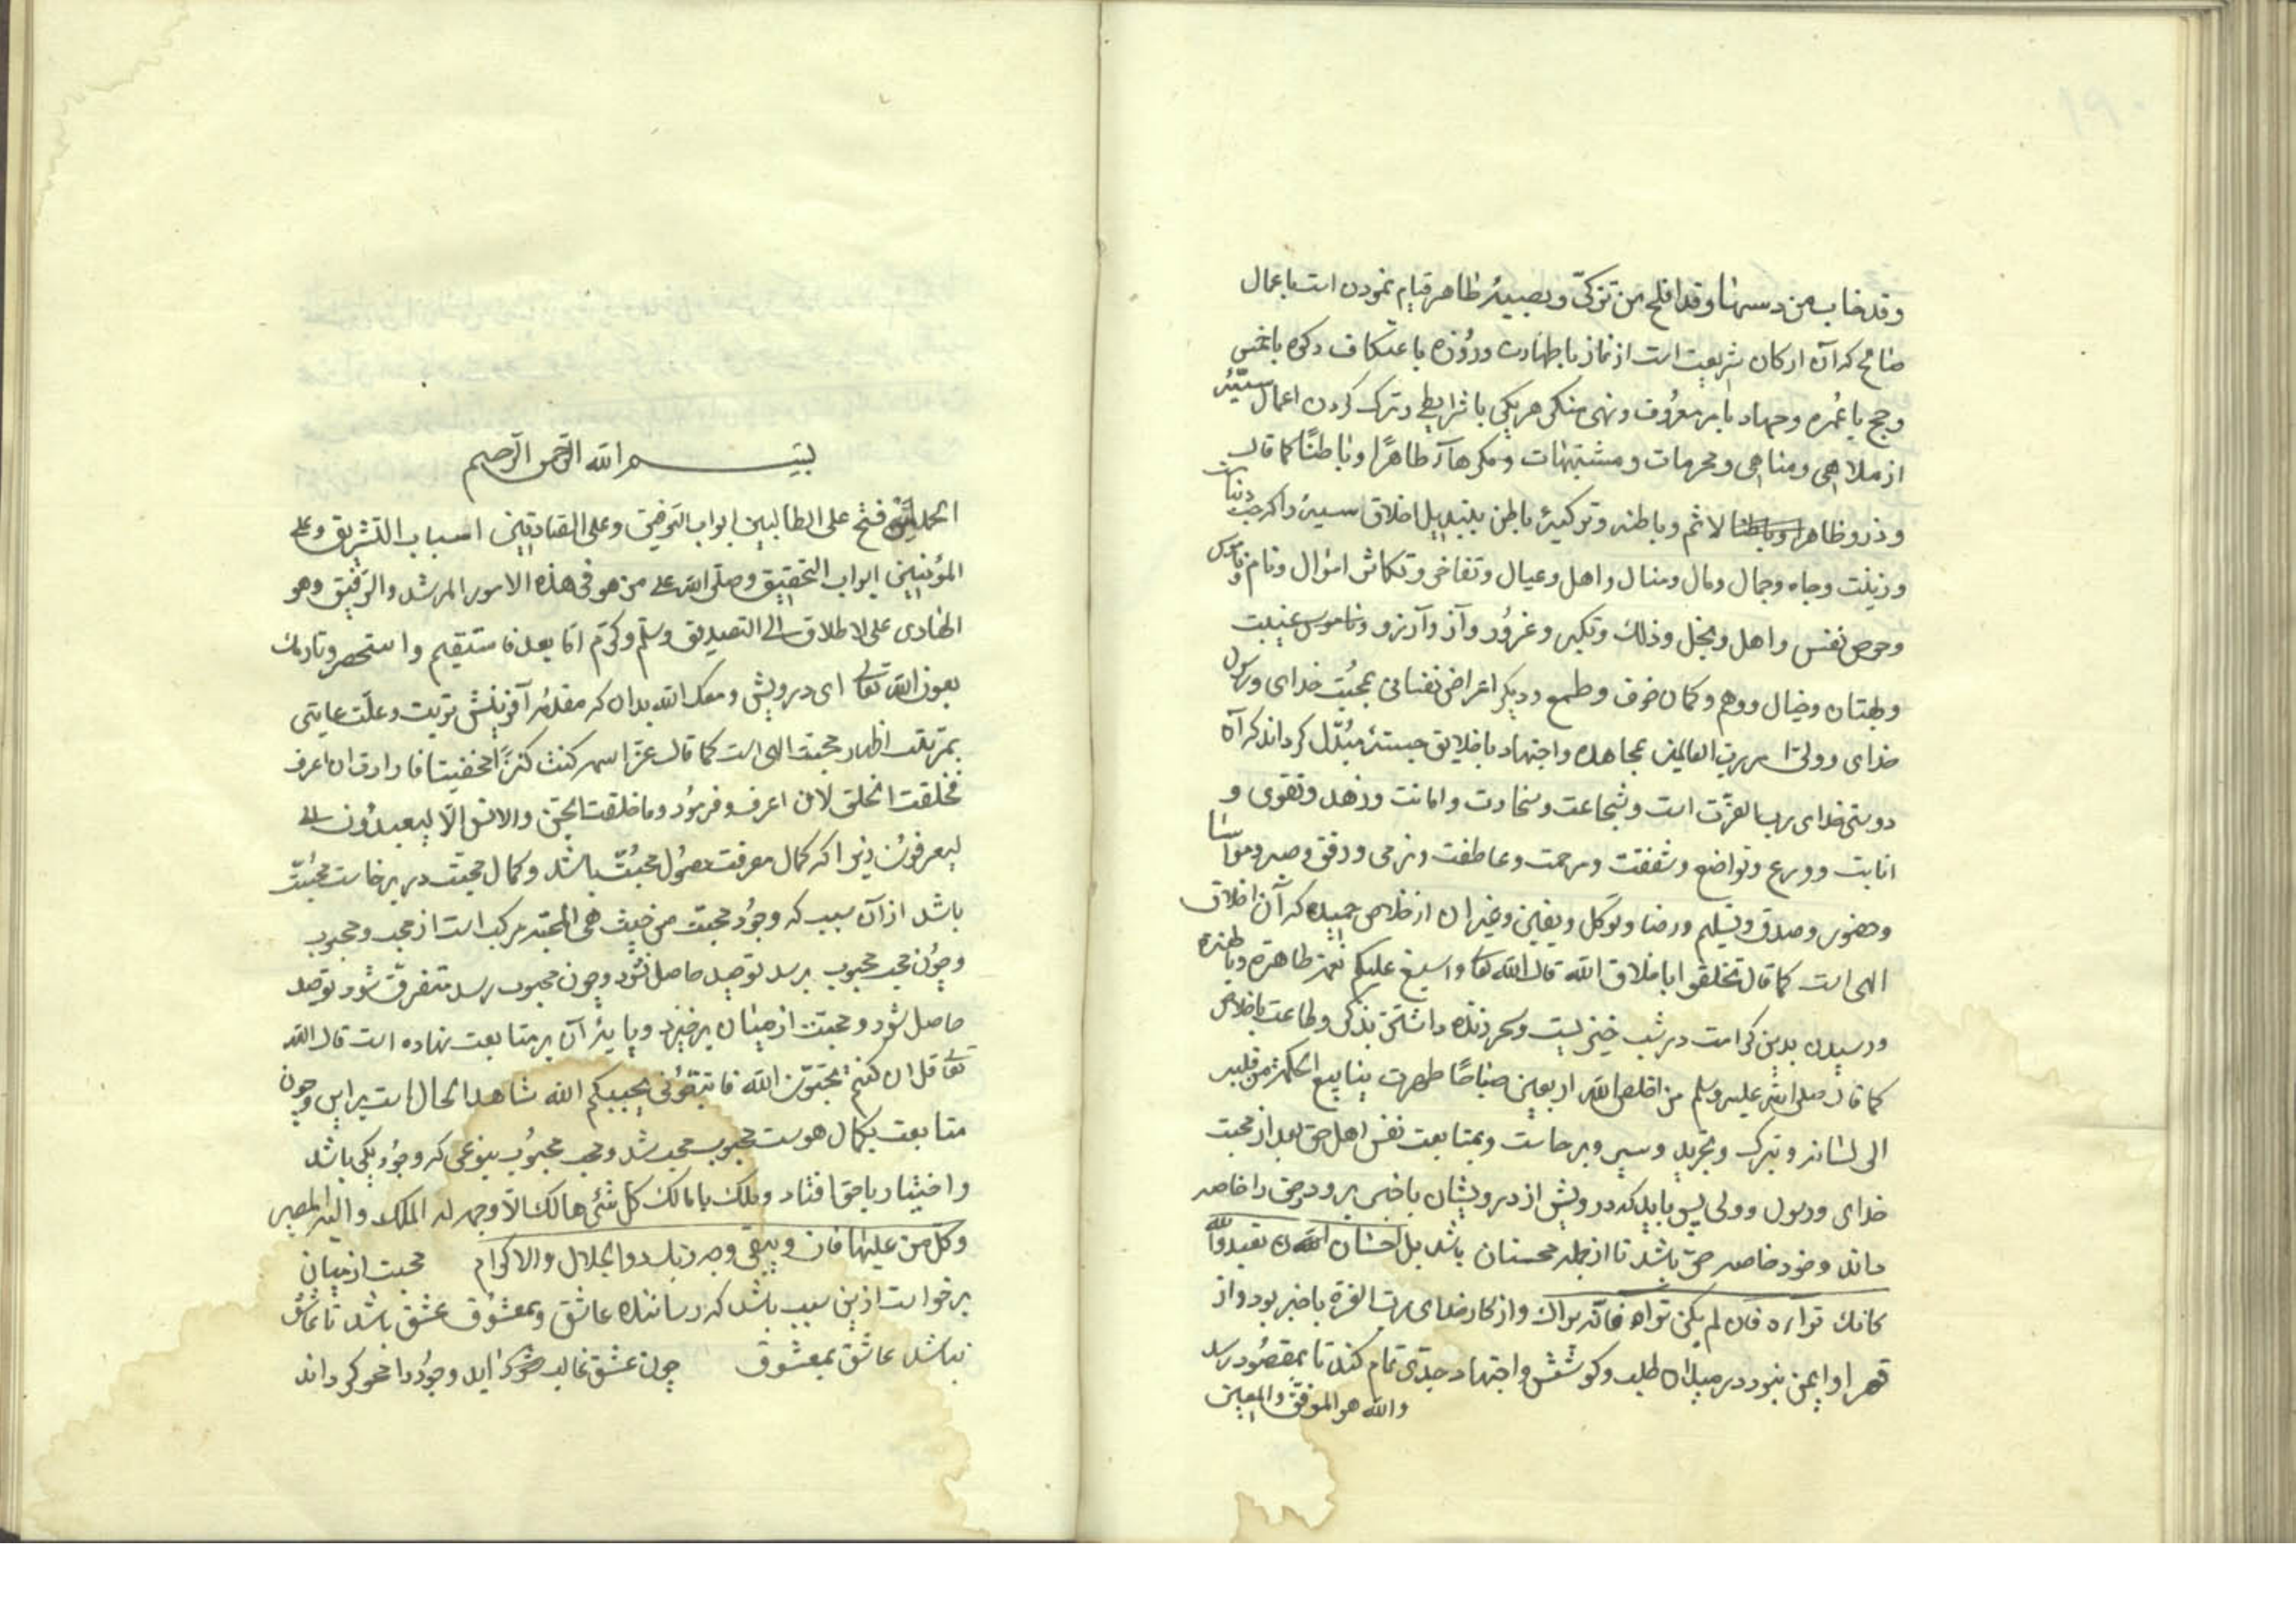 ۱۹۰
وقد خاب من دسیها وقد افلح من تزکّی وبصیبهٔ ظاهر قیام نمودن است باعمال
صالح که آن ارکان شریعت است از نماز با طهارت وروُزه با عتکاف وزکوه با
وحج با عُمره وجهاد با مر معرُوف ونهی منکر هریکی با شرایطی وترک کردن اعمال سیّئهٔ
از ملاهی ومناهی ومحرمات ومشتبهات ومکرهات ظاهرًا وباطنًا کما قال
وذرو ظاهر الاثم وباطنه وتزکیهٔ باطن بتبدیل اخلاق سیئه را که حب دنیا
وزینت وجاه وجمال ومال ومنال واهل وعیال وتفاخر وتکاثر اموال ونام وناموس
وحرص نفس واهل وبخل وذلت وتکبر وغرُور وآز وآرزو وناموس غیبت
وبهتان وخیال ووهم وکمان خوف وطمع ودیکر اغراض نفسانی بمحبُت خدای ورسول
خدای وولی امر رب العالمین بمجاهده واجتهاد باخلایق حسنهٔ مبُدّل کرداند که آن
دوستی خدای رب العزّت است وشجاعت وسخاوت وامانت وزهد وتقوی و
انابت وورع وتواضع وشفقت ومرحمت وعاطفت ونرمی ورفق وصبر ومواسا
وحضور وصدق وتسلیم ورضا وتوکل ویقین وغیر ان از خلاص حمیده که آن اخلاق
الهی است کما قال تخلقوا باخلاق الله قال الله تعالی واسبغ علیکم نعمه ظاهرة وباطنة
ورسیدن بدین کرامت در شب خیزیست وسحر زنده داشتن بذکر وطاعت باخلاص
کما قال صلی الله علیه وسلم من اخلص لله اربعین صباحًا ظهرت ینابیع الحکمة من قلبه
الی لسانه وبترک وتجرید وسیر وبرخاست وبمتابعت نفس اهل حق بعد از محبت
خدای ورسول وولی پس باید که درویش از درویشان باخبر بود وحق را خاصه
ماند وخود خاصه حق باشد تا از جمله محسنان باشد بل احسان ان تعبدوا الله
کانک تراه فان لم یکن تراه فانه یراک واز کار خدای رب العزة باخبر بود واز
قهر او ایمن نبود در میدان طلب وکوشش واجتهاد جدّی تمام کند تا بمقصُود رسد
والله هو الموفق والمعین
بسم الله الرّحمن الرّحیم
الحمد لله فتح علی الطالبین ابواب التوفیق وعلی الصّادقین اسباب التشریق وعلی
المؤمنین ابواب التحقیق وصلّی الله علی من هو فی هذه الامور المرشد والرّفیق وهو
الهادی علی الاطلاق الی التصدیق وسلّم وکرّم امّا بعد فاستقیم واستحصر وتارمک
بعون الله تعالی ای درویش ومعک الله بدان که مقدمهٔ آفرینش تربیت وعلّت غایتی
بمرتبت اظهار محبت الهی است کما قال عزّ اسمه کنت کنزًا مخفیًا فاردت ان اعرف
فخلقت الخلق لان اعرف وفرمُود وما خلقت الجن والانس الّا لیعبدُون الی
لیعرفوُن زیرا که کمال معرفت حصُول محبُتّ باشد وکمال محبّت در برخاست محبُتّ
باشد از آن سبب که وجوُد محبّت من حیث هی المحبّه مرکب است از محب ومحبوب
وچوُن محب محبوب برسد توحید حاصل شوُد وچون محبوب رسد متفرّق شود توحد
حاصل شود ومحبت از میان برخیزد وپایهٔ آن بر متابعت نهاده است قال الله
تعالی قل ان کنتم تحبّوُن الله فاتبعُونی یحببکم الله شاهد الحال است براین وچون
متابعت بکمال هوست محبوب محب شد ومحب محبُوب بنوعی که وجوُد یکی باشد
واختیار با حق افتاد وملک با مالک کل شئ هالک الّا وجهه له الملک والیه المصیر
وکل من علیها فان ویبقی وجه ربک ذوالجلال والاکرام محبت از میان
برخواست ازین سبب باشد که رساننده عاشق وبمعشوق عشق باشد تا عاشق
نباشد عاشق بمعشوق چون عشق غالب آید وجوُد را محو کرداند